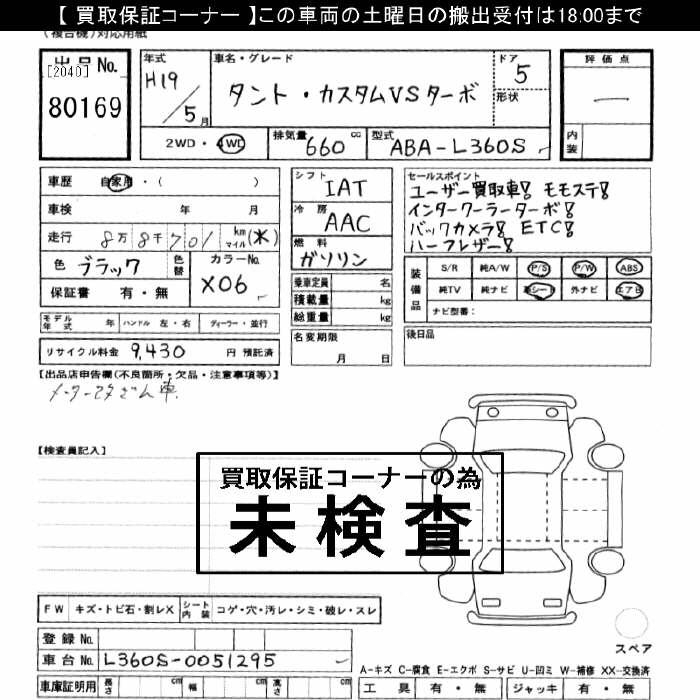 【 買取保証コーナー 】この車両の土曜日の搬出受付は18:00まで
(複合機)対応用紙
出品No.
[2040]
80169
年式
H19/5月
車名・グレード
タント・カスタムVSターボ
ドア
5
形状
評価点
―
内装
2WD・4WD
排気量 660 cc
型式 ABA-L360S
車歴 自家用・( )
車検 年 月
走行 8万8千701 km マイル
色 ブラック 色替
カラーNo. X06
保証書 有・無
シフト IAT
冷房 AAC
燃料 ガソリン
乗車定員 名
積載量 kg
総重量 kg
セールスポイント
ユーザー買取車! モモステ!
インタークーラーターボ!
バックカメラ! ETC!
ハーフレザー!
装備品
S/R 純A/W P/S P/W ABS
純TV 純ナビ 革シート 外ナビ エアB
ナビ型番:
モデル年式 年 ハンドル 左・右 ディーラー・並行
名変期限
月 日
後日品
リサイクル料金 9,430 円 預託済
【出品店申告欄(不良箇所・欠品・注意事項等)】
メーター改ざん車
【検査員記入】
買取保証コーナーの為
未検査
FW キズ・トビ石・割レX シート内装 コゲ・穴・汚レ・シミ・破レ・スレ
スペア
登録No.
車台No. L360S-0051295
車庫証明用 長さ cm 幅 cm 高さ cm
A-キズ C-腐食 E-エクボ S-サビ U-凹ミ W-補修 XX-交換済
工具 有・無 ジャッキ 有・無